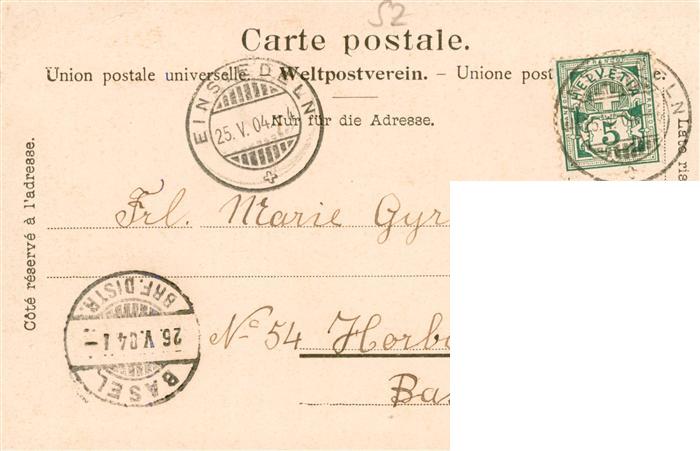 52
Carte postale.
Union postale universelle. Weltpostverein. – Unione post
Nur für die Adresse.
EINSIEDELN
25. V. 04
FRANCO
HELVETIA
5
LN
Côté réservé à l'adresse.
Lato ris
Frl. Marie Gyr
BRF.DISTR.
26. V. 04
BASEL
No 54 Horb
Ba